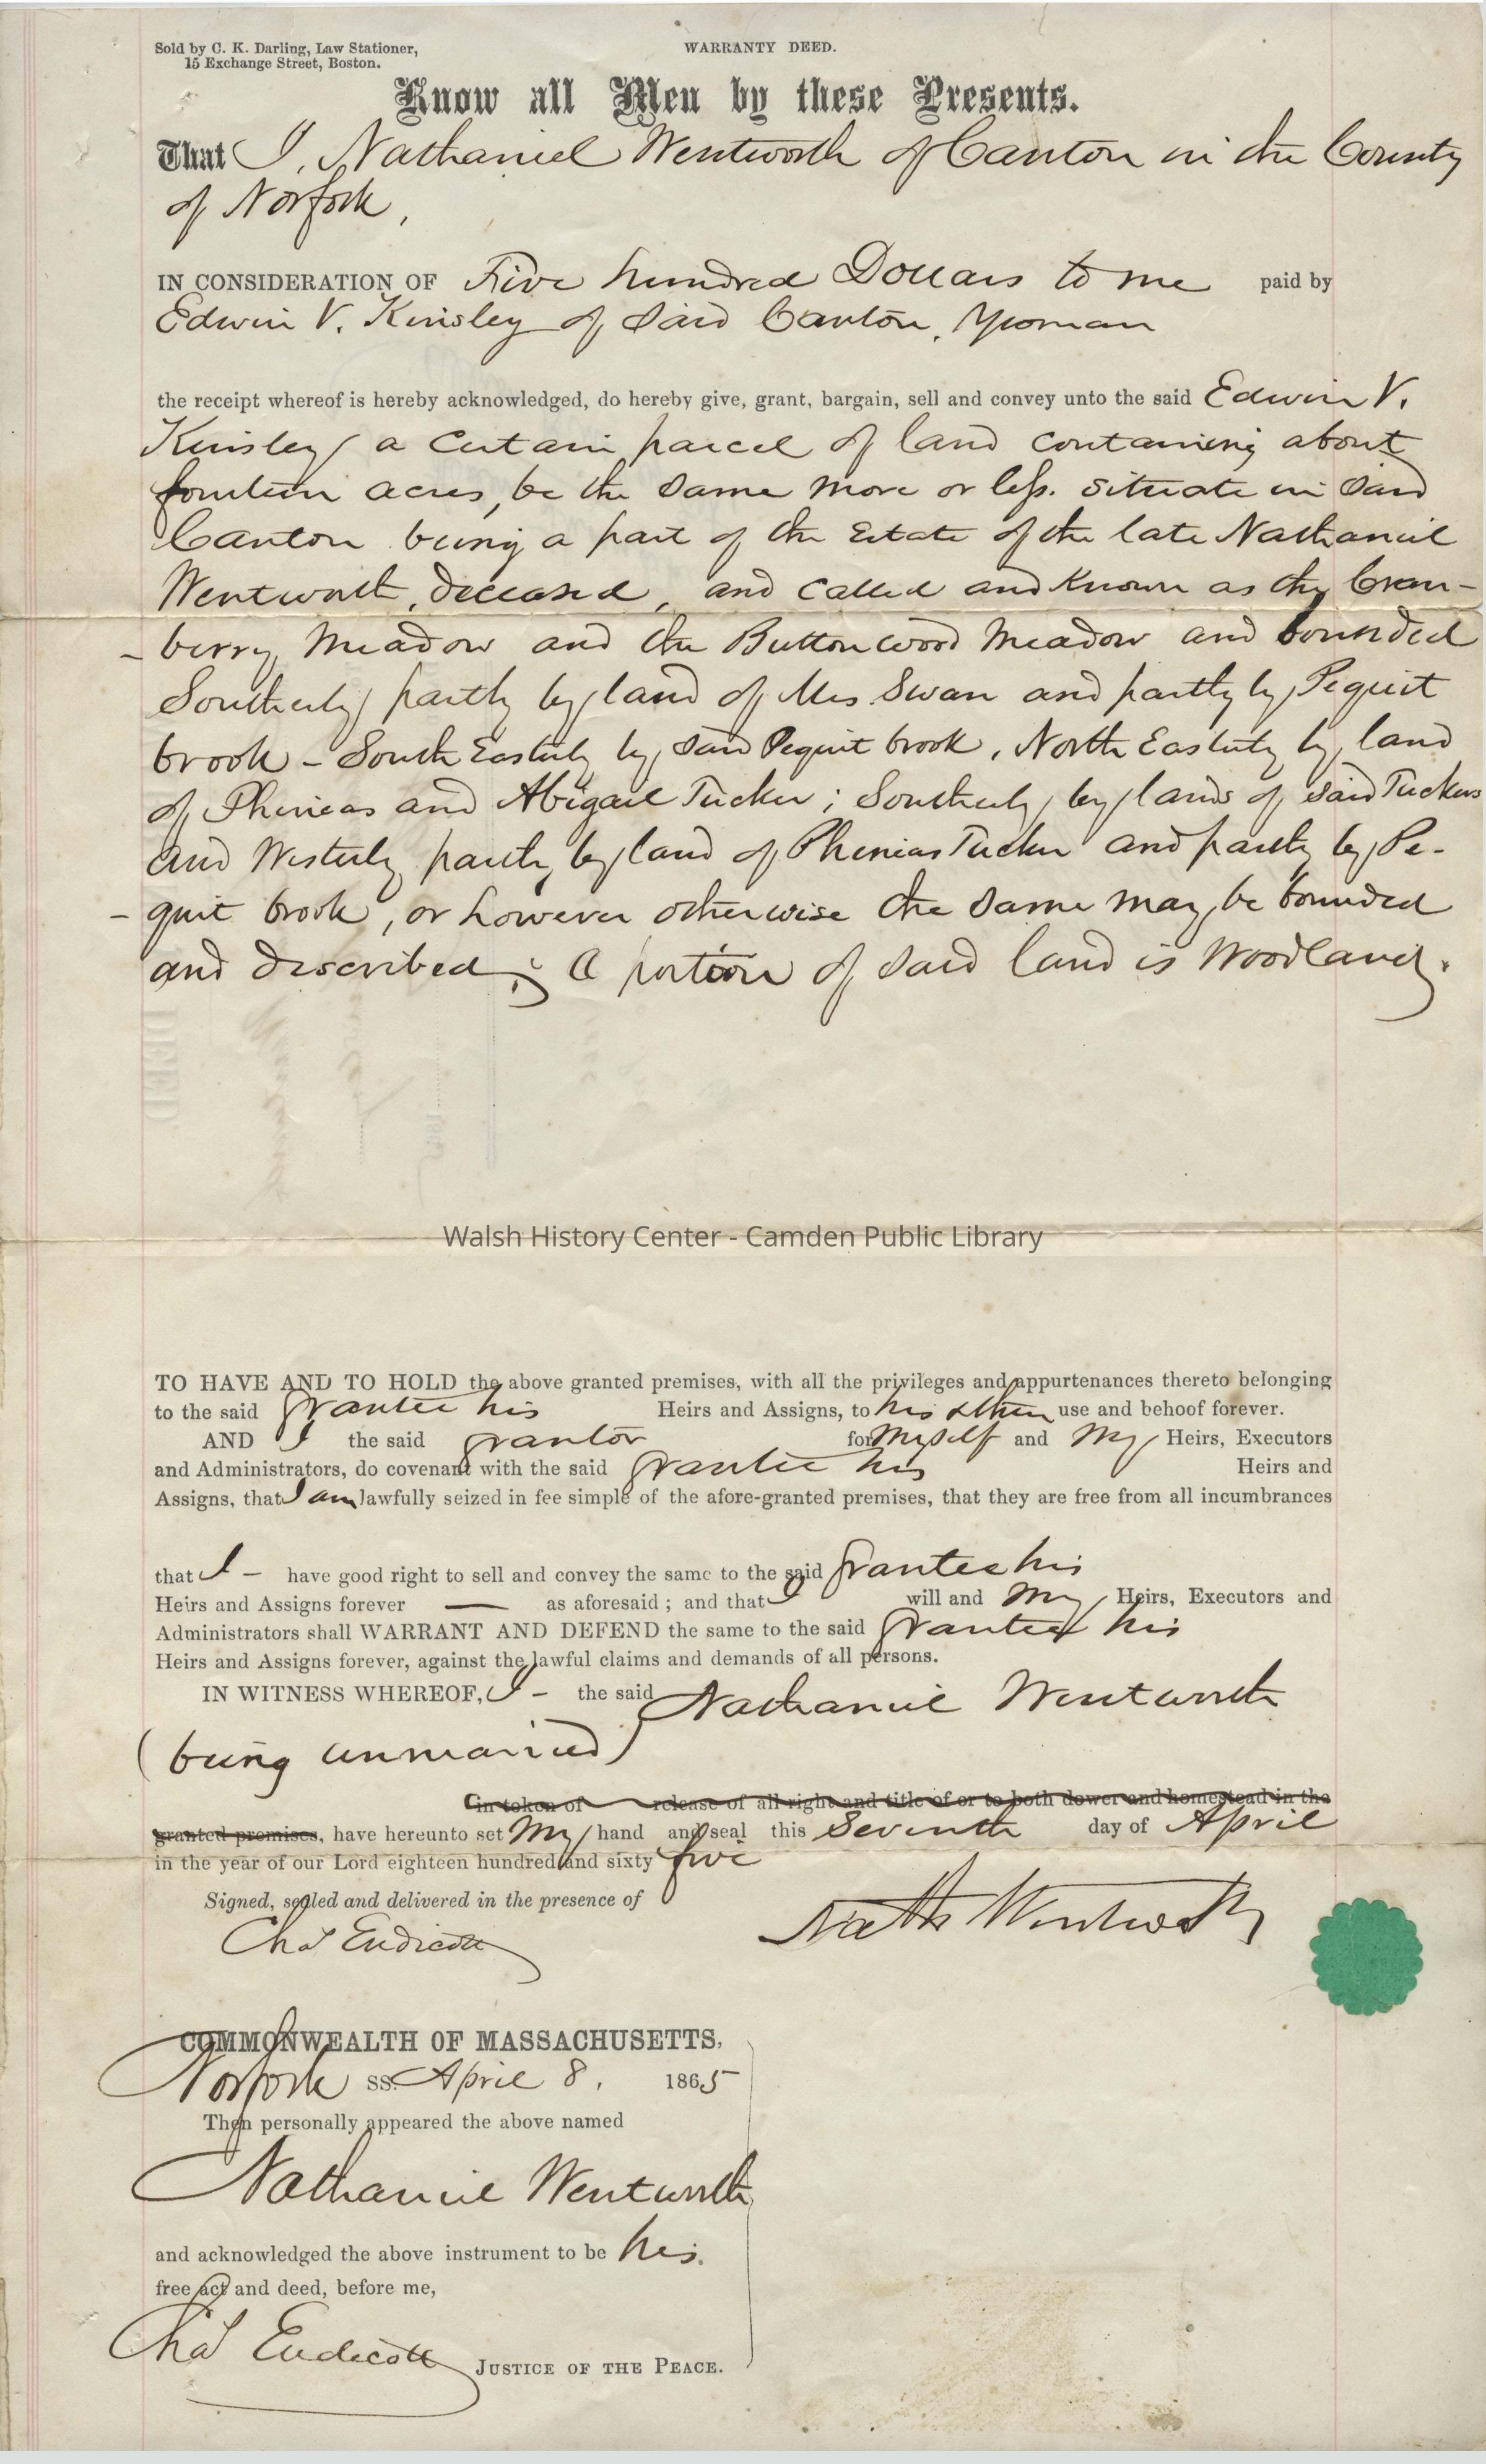 Sold by C. K. Darling, Law Stationer,
15 Exchange Street, Boston.
WARRANTY DEED.
Know all Men by these Presents.
That I, Nathaniel Wentworth of Canton in the County
of Norfolk,
IN CONSIDERATION OF Five hundred Dollars to me paid by
Edwin V. Kinsley of said Canton, Yeoman
the receipt whereof is hereby acknowledged, do hereby give, grant, bargain, sell and convey unto the said Edwin V.
Kinsley a certain parcel of land containing about
fourteen acres, be the same more or less. situate in said
Canton being a part of the Estate of the late Nathaniel
Wentworth, deceased, and called and known as the Cran-
-berry Meadow and the Buttonwood Meadow and bounded
Southerly partly by land of Mrs. Swan and partly by Pequit
brook - South Easterly by said Pequit brook, North Easterly by land
of Phineas and Abigail Tucker; Southerly by lands of said Tuckers
and Westerly partly by land of Phineas Tucker and partly by Pe-
-quit brook, or however otherwise the same may be bounded
and described; a portion of said land is Woodland.
Walsh History Center - Camden Public Library
TO HAVE AND TO HOLD the above granted premises, with all the privileges and appurtenances thereto belonging
to the said grantee his Heirs and Assigns, to his & their use and behoof forever.
AND I the said grantor for myself and my Heirs, Executors
and Administrators, do covenant with the said grantee his Heirs and
Assigns, that I am lawfully seized in fee simple of the afore-granted premises, that they are free from all incumbrances
that I - have good right to sell and convey the same to the said grantee his
Heirs and Assigns forever — as aforesaid; and that I will and my Heirs, Executors and
Administrators shall WARRANT AND DEFEND the same to the said grantee his
Heirs and Assigns forever, against the lawful claims and demands of all persons.
IN WITNESS WHEREOF, I - the said Nathaniel Wentworth
(being unmarried)
in token of release of all right and title of or to both dower and homestead in the
granted premises, have hereunto set my hand and seal this Seventh day of April
in the year of our Lord eighteen hundred and sixty five
Signed, sealed and delivered in the presence of
Chas Endicott
Nathl Wentworth
COMMONWEALTH OF MASSACHUSETTS.
Norfolk ss. April 8. 1865
Then personally appeared the above named
Nathaniel Wentworth
and acknowledged the above instrument to be his
free act and deed, before me,
Chas Endicott JUSTICE OF THE PEACE.